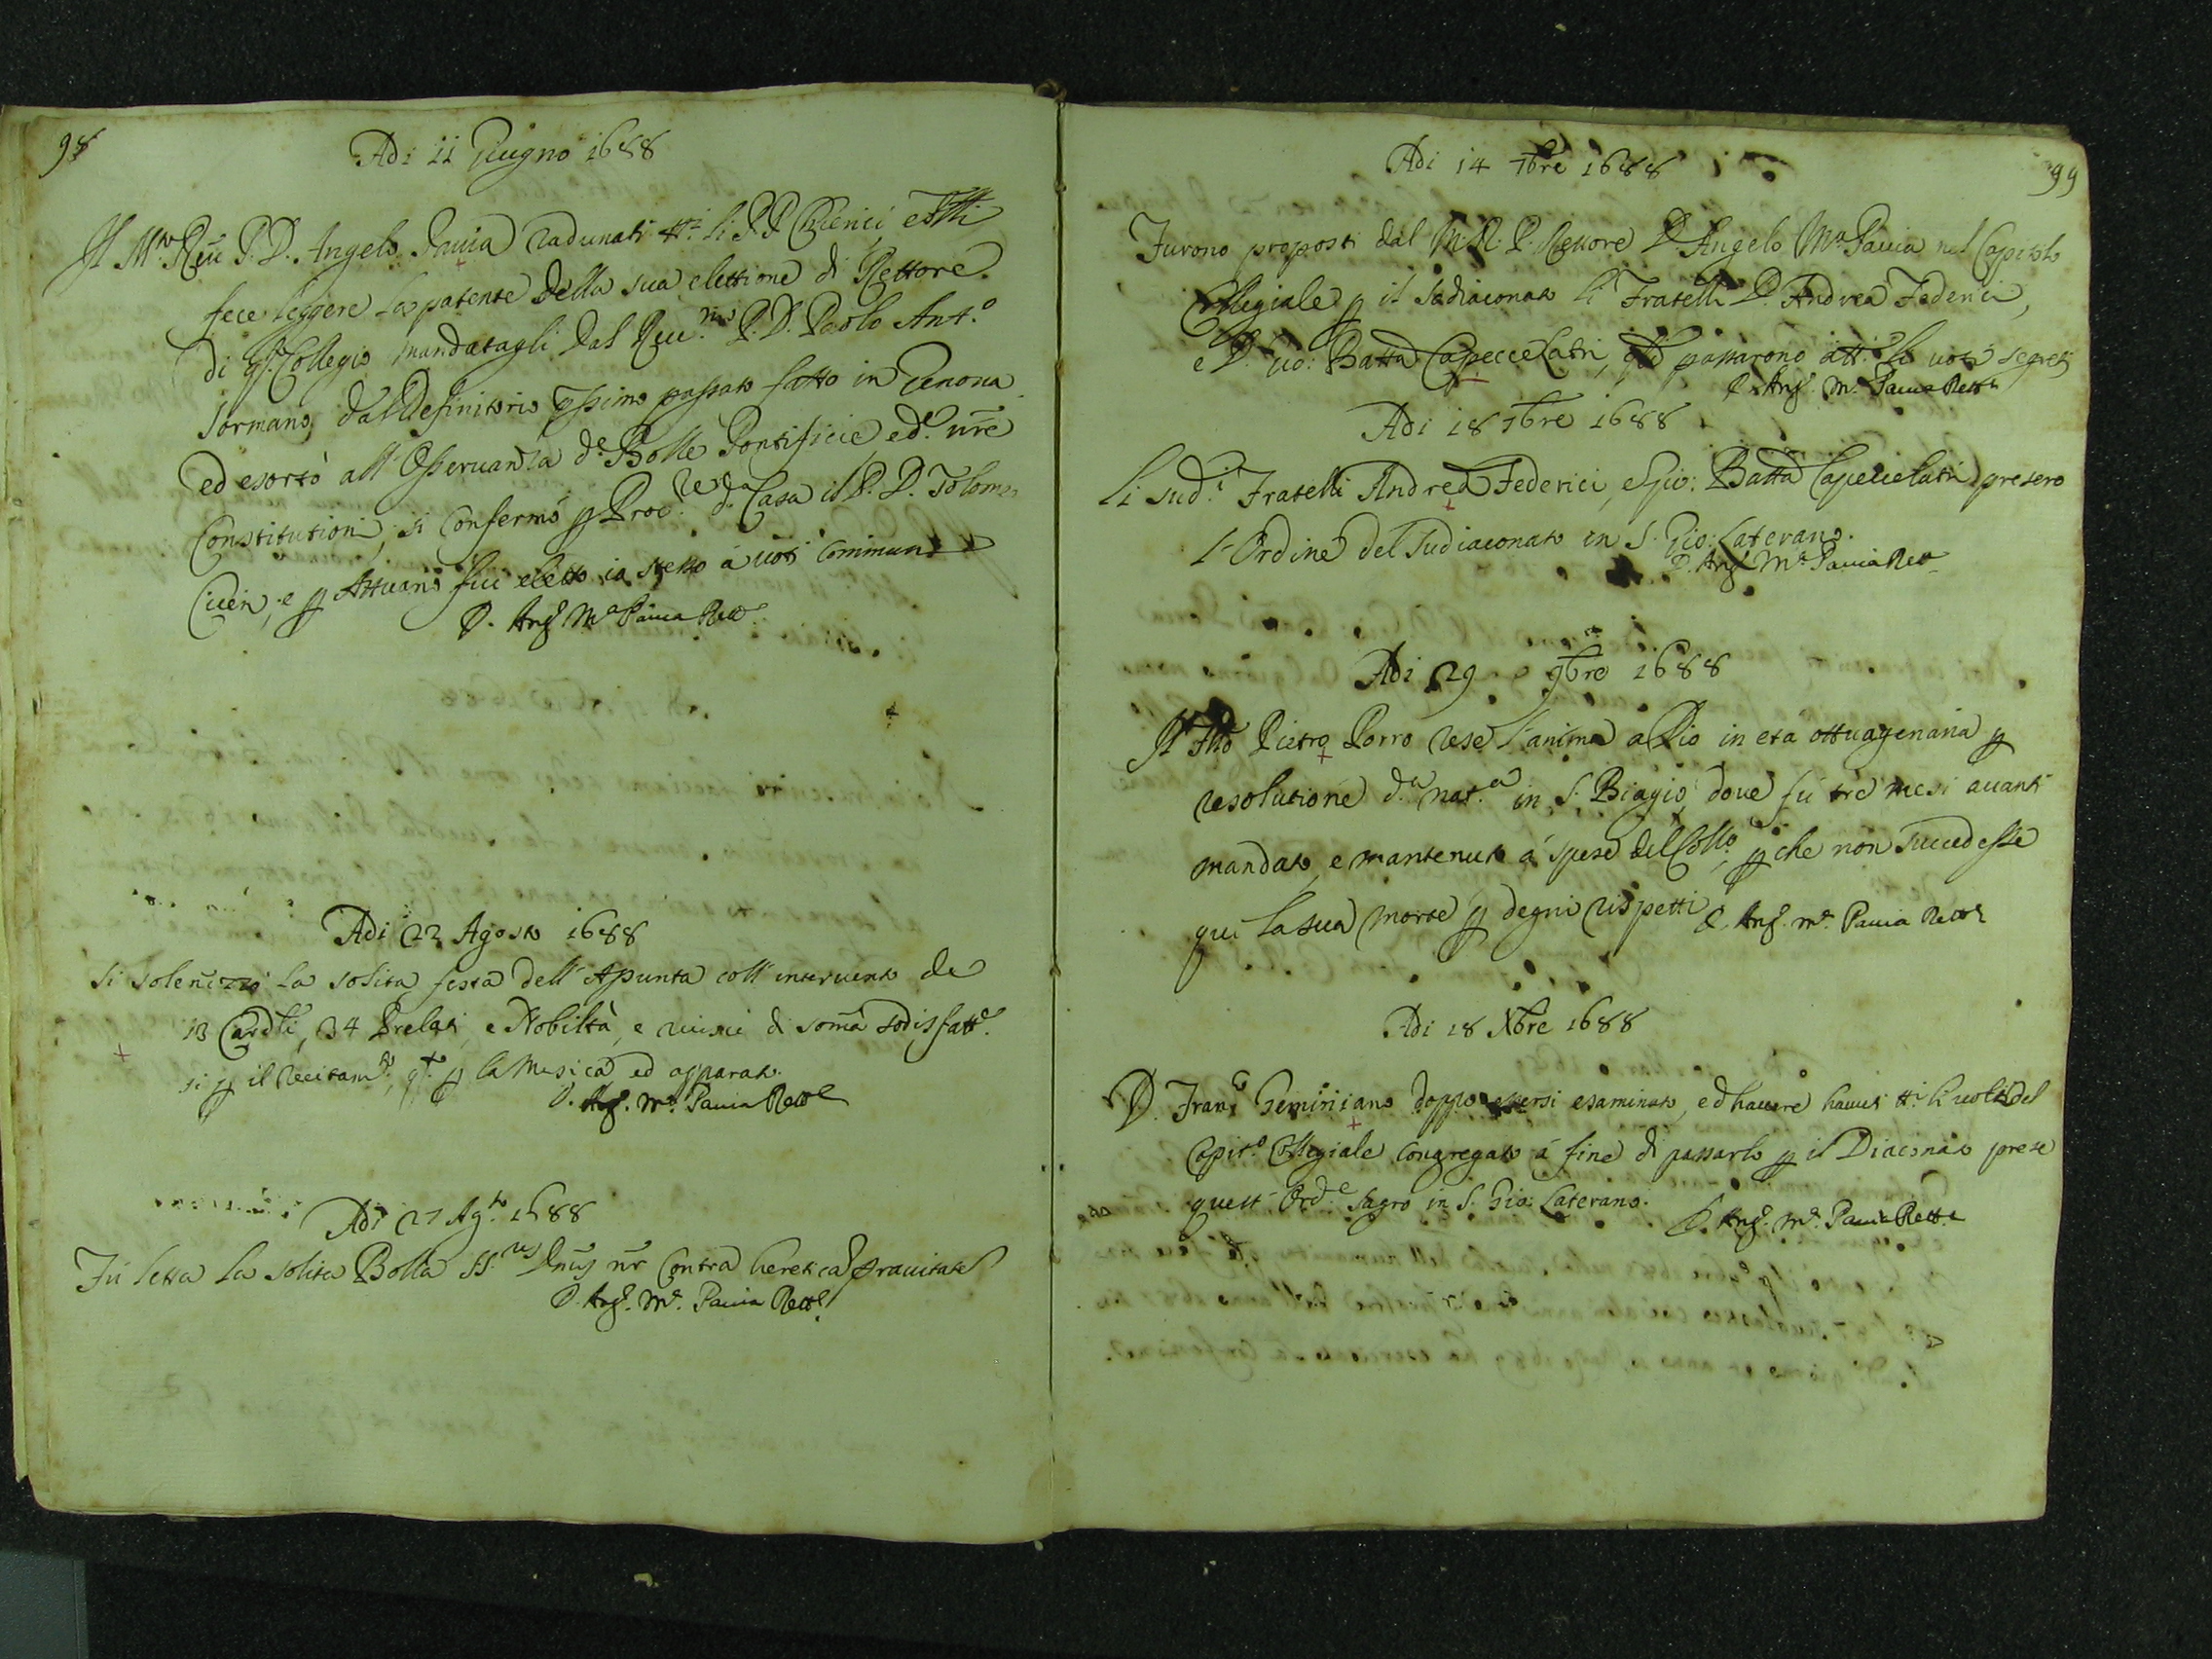 98
Adi 11 Giugno 1688
Il M.to Reu P. D. Angelo Pauia radunati tt.i li PP Chierici e flli
fece leggere la patente della sua elettione di Rettore
di q.o Collegio mandatagli dal Reu.mo P. D. Paolo Ant.o
Sormano, dal Definitorio prossimo passato fatto in Genoua
ed esortò all'Osseruanza d.e Bolle Pontificie, e d.e nre
Constitutioni, si confermò p Proc.re d.a Casa il P. D. Tolomeo
e p Attuario fui eletto io stesso à uoti communi
D. Ang.o M.a Pauia Rett.e
Adi 22 Agosto 1688
Si solenizzò la solita festa dell'Asunta coll'interuento de
13 Cardli, 34 Prelati, e Nobiltà, e riuscì di soma sodisfatt.e
si p il recitam.to, q.to p la Musica ed apparato.
D. Ang. M.a Pauia Rett.e
Adi 27 Ag.to 1688
Fù letta la solita Bolla SS.mus Dnus nr Contra heretica prauitate
D. Ang.o M.a Pauia Rett.e
99
Adi 14 7bre 1688
Furono proposti dal M. R. P. Rettore D. Angelo M.a Pauia nel Capitolo
Collegiale p il Sudiaconato li Fratelli D. Andrea Federici,
e D. Gio: Batta Capeccelatri, passarono à tt.i li uoti segreti
D. Ang.o M.a Pauia Rett.e
Adi 18 7bre 1688
Li sud.i Fratelli Andrea Federici, e Gio: Batta Capecelatri presero
l'Ordine del Sudiaconato in S. Gio: Laterano.
D. Ang.o M.a Pauia Rett
Adi 29 9bre 1688
Il Fllo Pietro Porro rese l'anima a Dio in età ottuagenaria p
resolutione d.a nat.a in S. Biagio, doue fù tre mesi auanti
mandato, e mantenuto à spese del Coll.o, p che non succedesse
qui la sua morte p degni rispetti
D. Ang.o M.a Pauia Rett.e
Adi 18 Xbre 1688
D. Fran.co Geminiano doppo essersi esaminato, ed hauere hauuti tt.i li uoti del
Capit.o Collegiale congregato à fine di passarlo p il Diaconato prese
quest'Ord.e Sagro in S. Gio: Laterano.
D. Ang.o M.a Pauia Rett.e